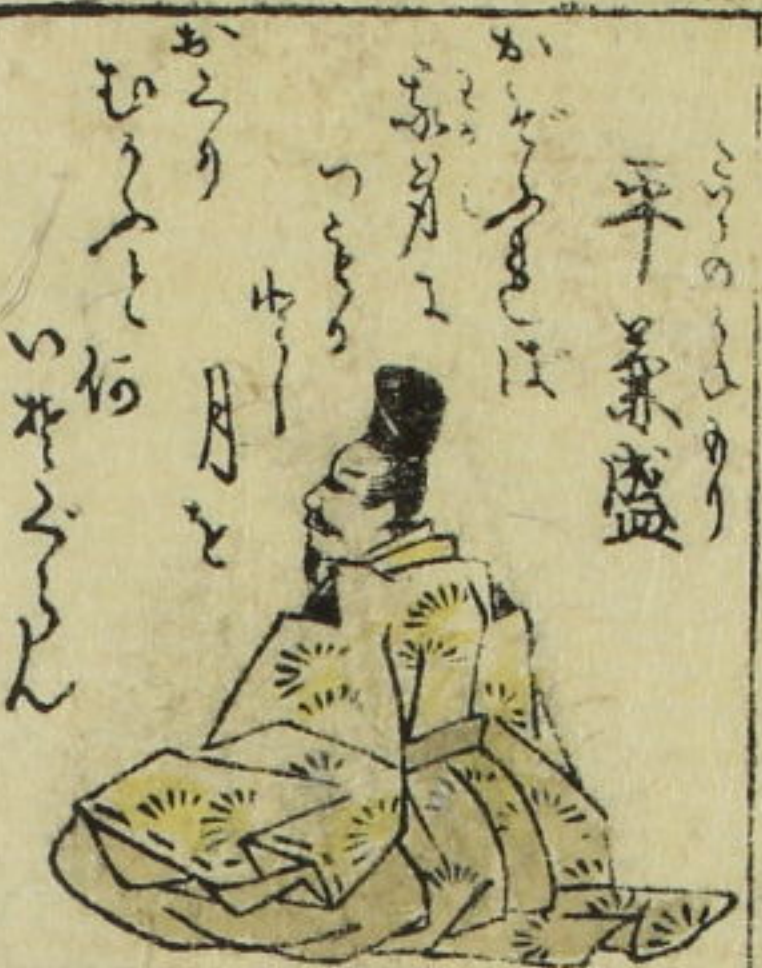 たいらのかねもり
平兼盛
かぞふれば
わがみ
我身に
つもる
とし
月を
おくり
むかふと
何
いそぐらん